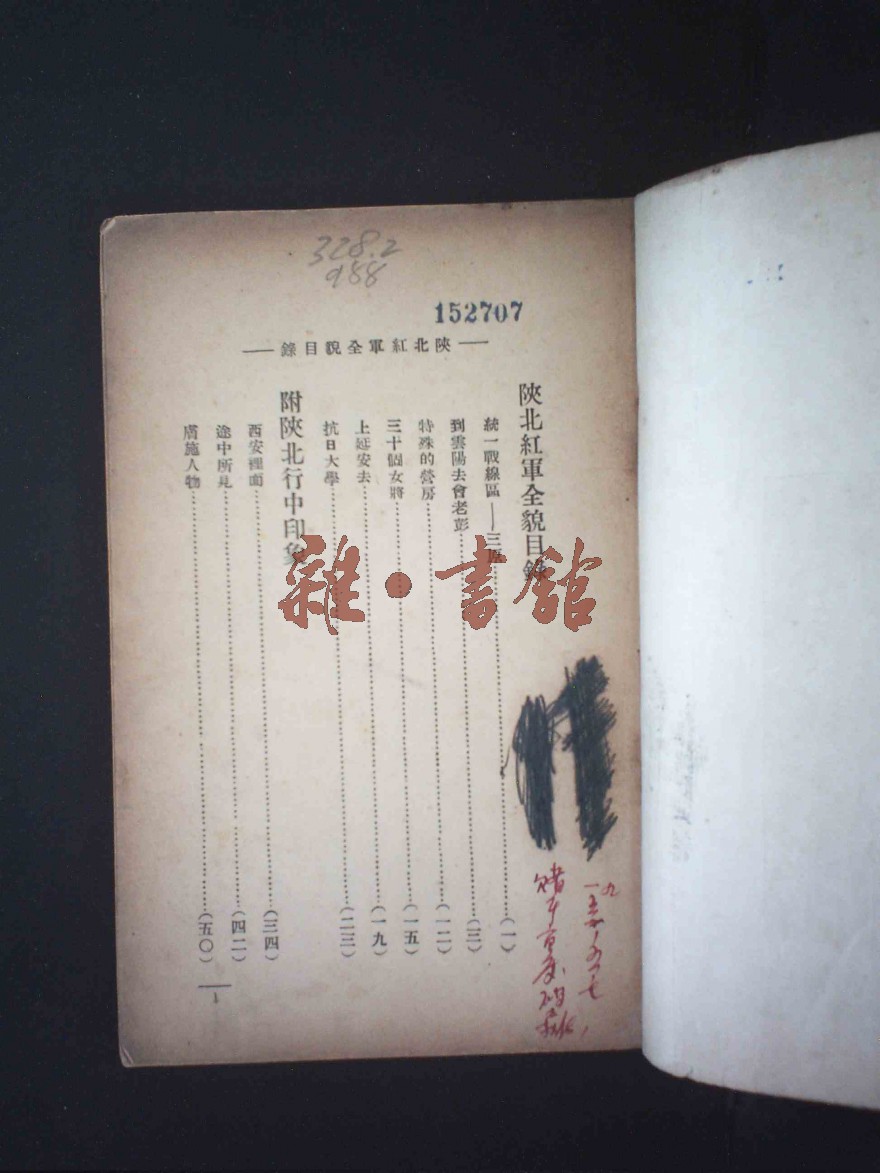 328.2
988
152707
陝北紅軍全貌目錄
陝北紅軍全貌目錄
統一戰線區——三原(一)
到雲陽去會老彭(三)
特殊的營房(一二)
三十個女將(一五)
上延安去(一九)
抗日大學(二三)
附陝北行中印象
西安裡面(三四)
途中所見(四二)
膚施人物(五〇)
1
雜·書館